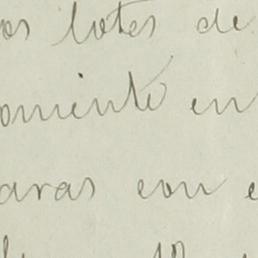 os lotes de
omiento en
aras con e